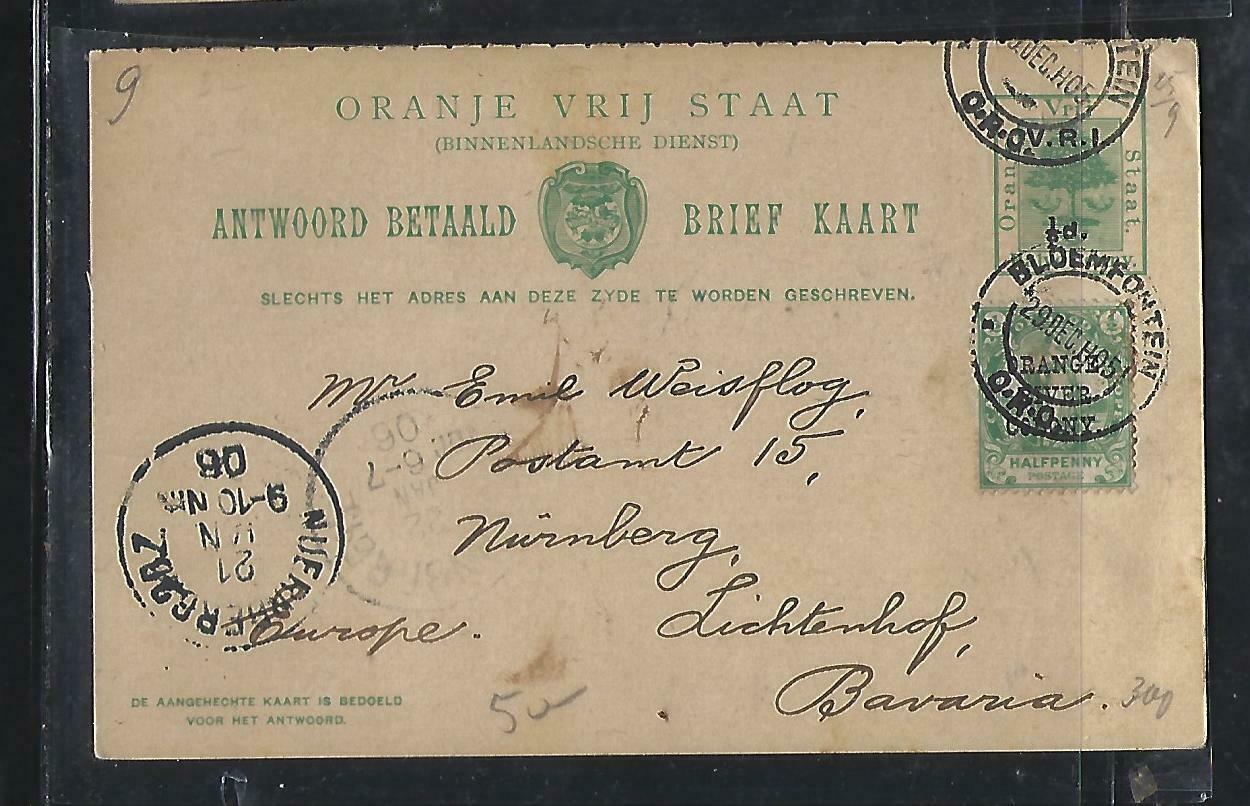 9
ORANJE VRIJ STAAT
(BINNENLANDSCHE DIENST)
ANTWOORD BETAALD BRIEF KAART
SLECHTS HET ADRES AAN DEZE ZYDE TE WORDEN GESCHREVEN.
TEIN
DEC.H05
O.R.C.
V.R.I.
Oran
Vrij
Staat.
½d.
BLOEMFONTEIN
29DEC.H05
O.R.C.
ORANGE
RIVER
COLONY.
HALFPENNY
POSTAGE
Mr Emil Weisflog,
Postamt 15,
Nürnberg,
Lichtenhof,
Europe.
Bavaria.
NUERNBERG 2 BZ
21
9-10 N
06
22
JAN
6-7
06
DE AANGEHECHTE KAART IS BEDOELD
VOOR HET ANTWOORD.
50
300